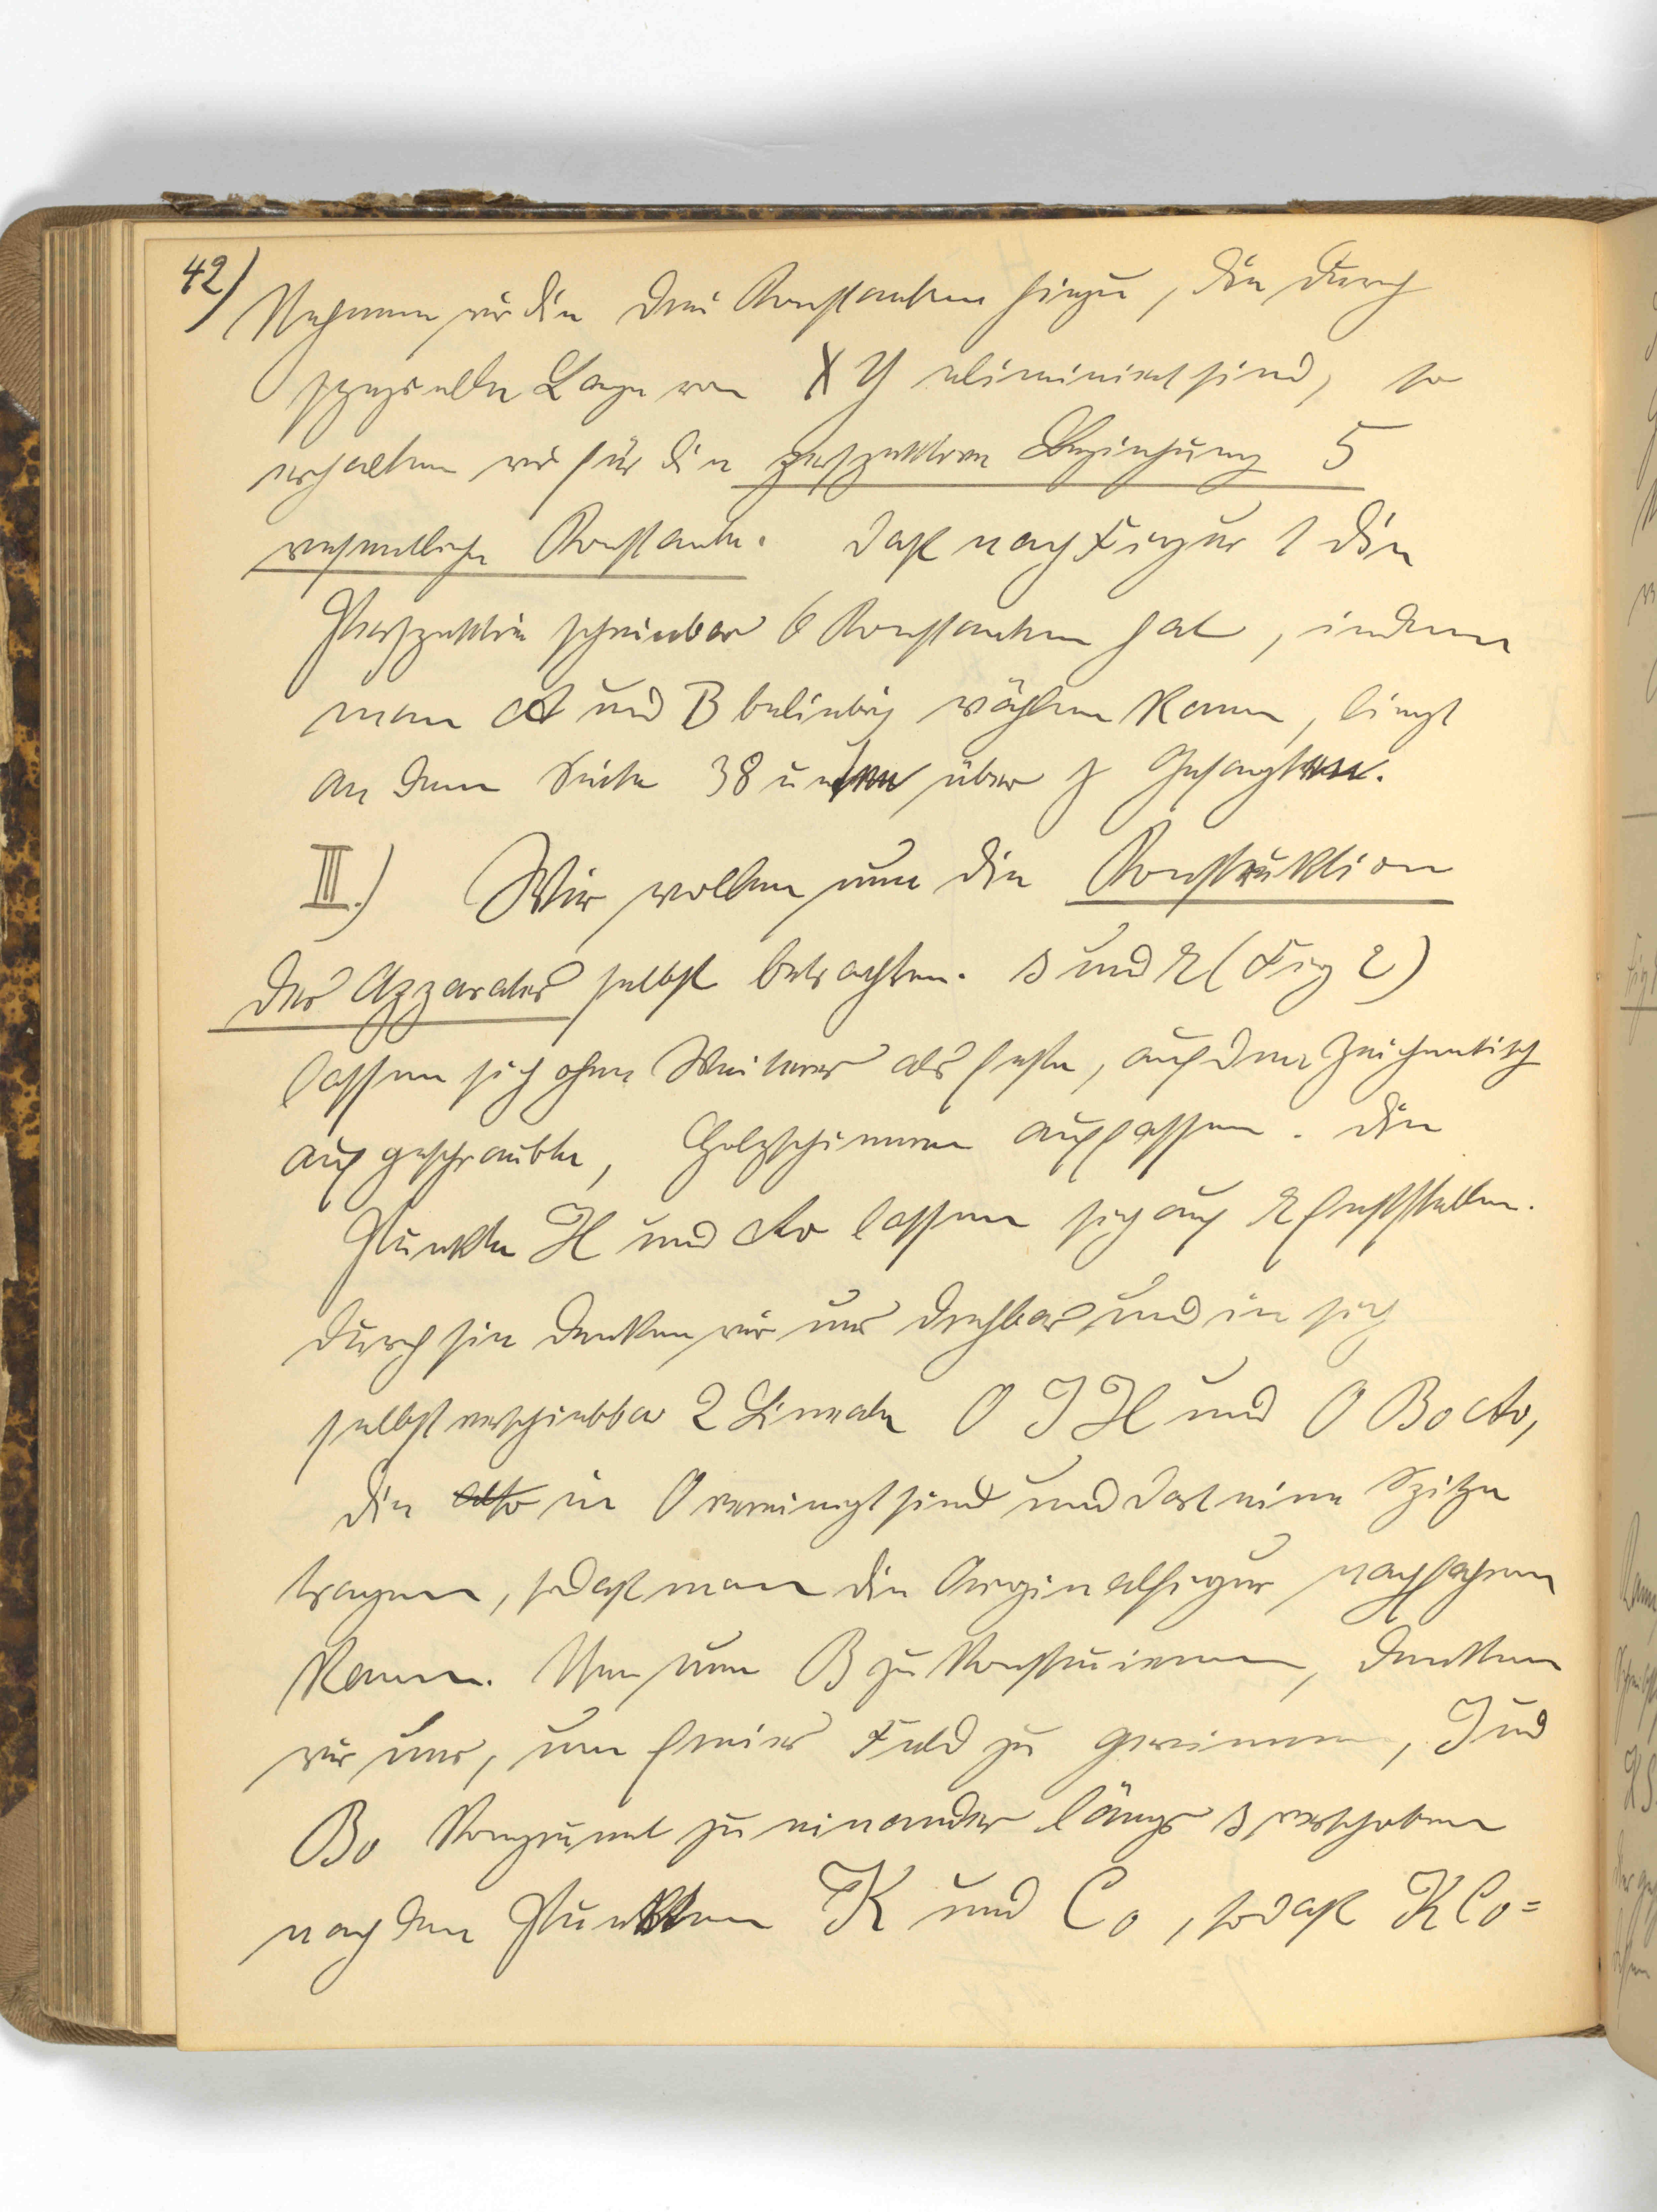 42) Nehmen wir die drei Konstanten hinzu, die durch
spezielle Lage von X Y eliminiert sind, so
erhalten wir für die perspektive Beziehung 5
wesentliche Konstante. Daß nach Figur 1 die
Perspektive scheinbar 6 Konstanten hat, indem
man A und B beliebig wählen kann, liegt
an dem Seite 38 unten über Gesagten.
III.) Wir wollen nun die Konstruktion
des Apparates selbst betrachten. s und r (Fig 2)
lassen sich ohne Weiteres als feste, auf dem Zeichentisch
aufgeschraubte, Holzschienen auffassen. Die
Punkte H und A0 lassen sich auf r feststellen.
Durch sie denken wir uns drehbar und in sich
selbst verschiebbar 2 Lineale O J H und O B0 A0,
die also in O vereinigt sind und dort eine Spitze
tragen, sodaß man die Originalfigur nachfahren
kann. Um nun B zu konstruieren, denken
wir uns, um freies Feld zu gewinnen, J und
B0 kongruent zu einander längs s verschoben
nach den Punkten K und C0, sodaß K C0 =